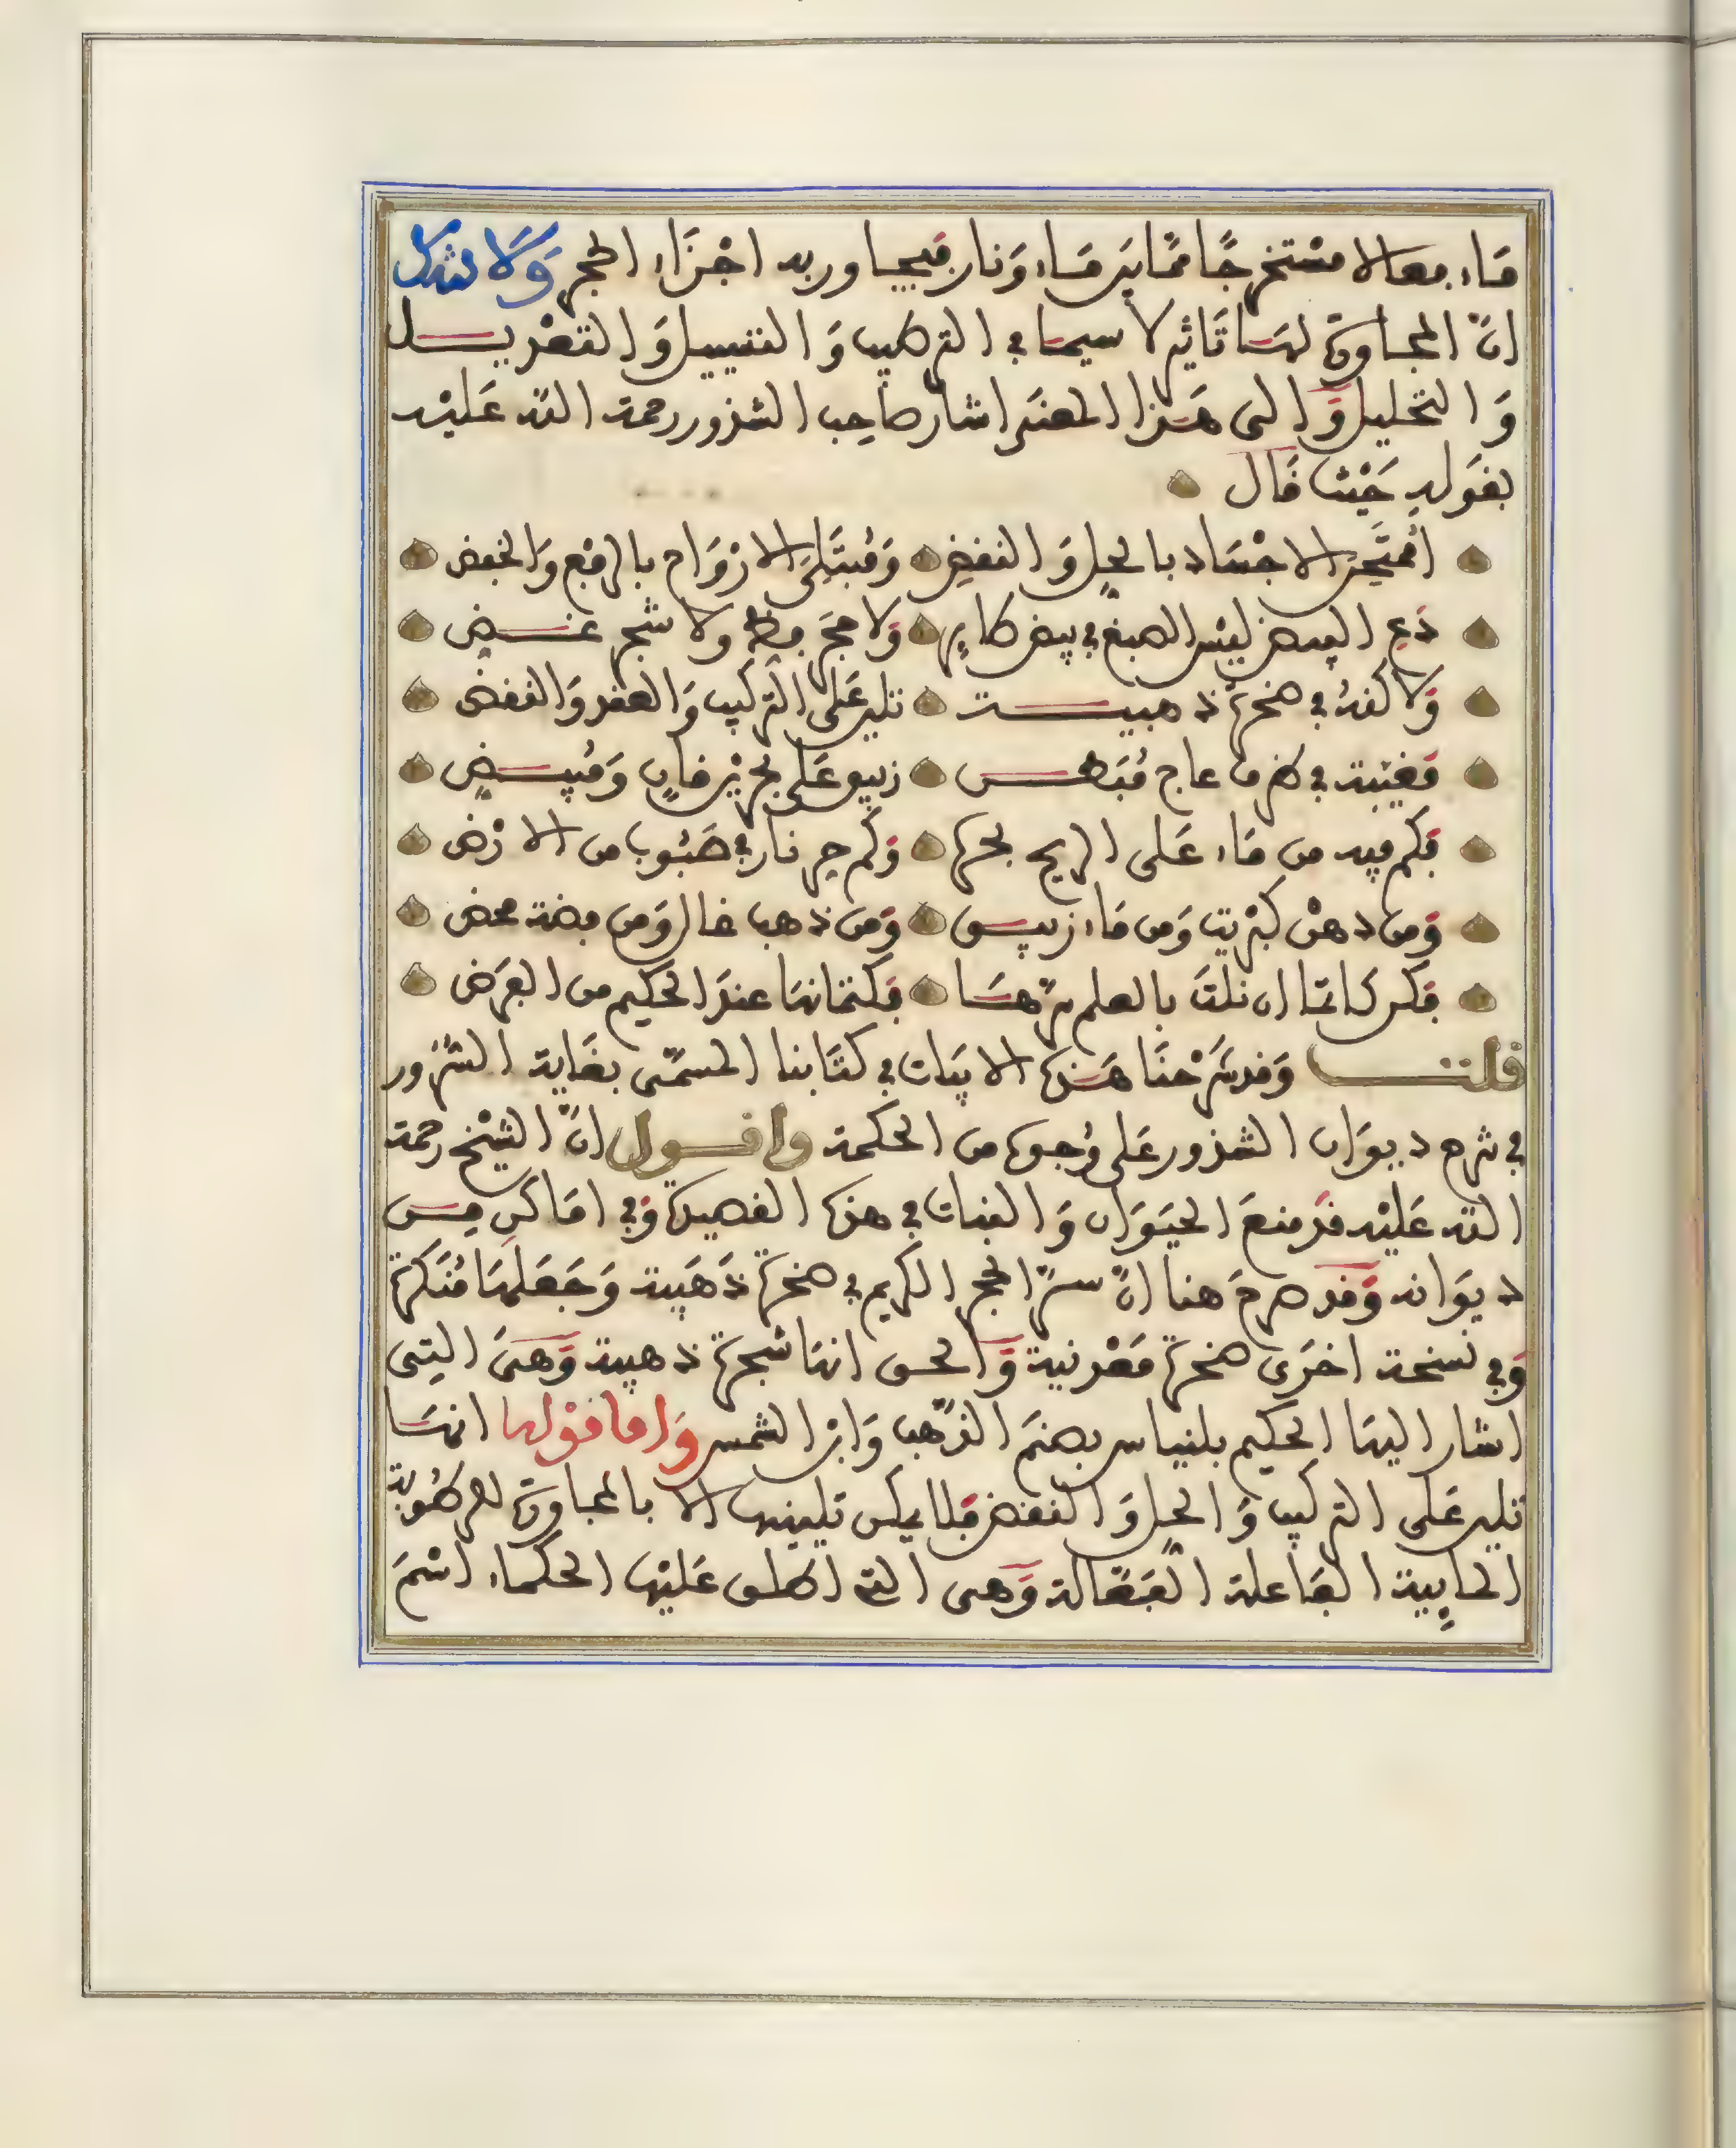 ماء فعالا مستخرجا مما بين ماء ونار فيجاور به اجزاء الحجر ولا شك
ان المجاورة لها تاثير لا سيما في التركيب والتبييل والتعديل
والتحليل والى هذا المعنى اشار صاحب الشذور رحمة الله عليه
بقوله حيث قال
اممتحن الاجساد بالحل والنقض ومبتلي الارواح بالرفع والخفض
دع البيض ليس الصبغ في بيض طاير ولا حجر فظ ولا شجر غض
ولاكنه في صخرة ذهبيت تلين على التركيب والعقد والنقض
مغيبة في كرم عاج مبطن زيبق على بحرين قان ومبيض
فكم فيه من ماء على الريح بحره وكم حر نار في هبوب من الارض
ومن دهن كبريت ومن ماء زيبق ومن ذهب غال ومن فضة محض
فكن كاتما ان نلت بالعلم سرها فكتمانها عند الحكيم من الفرض
قلت وقد شرحنا هذه الابيات في كتابنا المسمى بغاية الشذور
في شرح ديوان الشذور على وجوه من الحكمة واقول ان الشيخ رحمة
الله عليه قد منع الحيوان والنبات في هذه القصيدة وفي اماكن من
ديوانه وقد صرح هنا ان سر الحجر الكريم في صخرة ذهبية وجعلها منكرة
وفي نسخة اخرى صخرة معدنية والحق انها شجرة ذهبية وهي التي
اشار اليها الحكيم بلنياس بصنم الذهب وابن الشمس واما قولها انها
تلين على التركيب والحل والنقض فلا يمكن تليينها الا بالمجاورة للرطوبة
المايية الفاعلة الفعالة وهي التي اطلق عليها الحكماء اسم